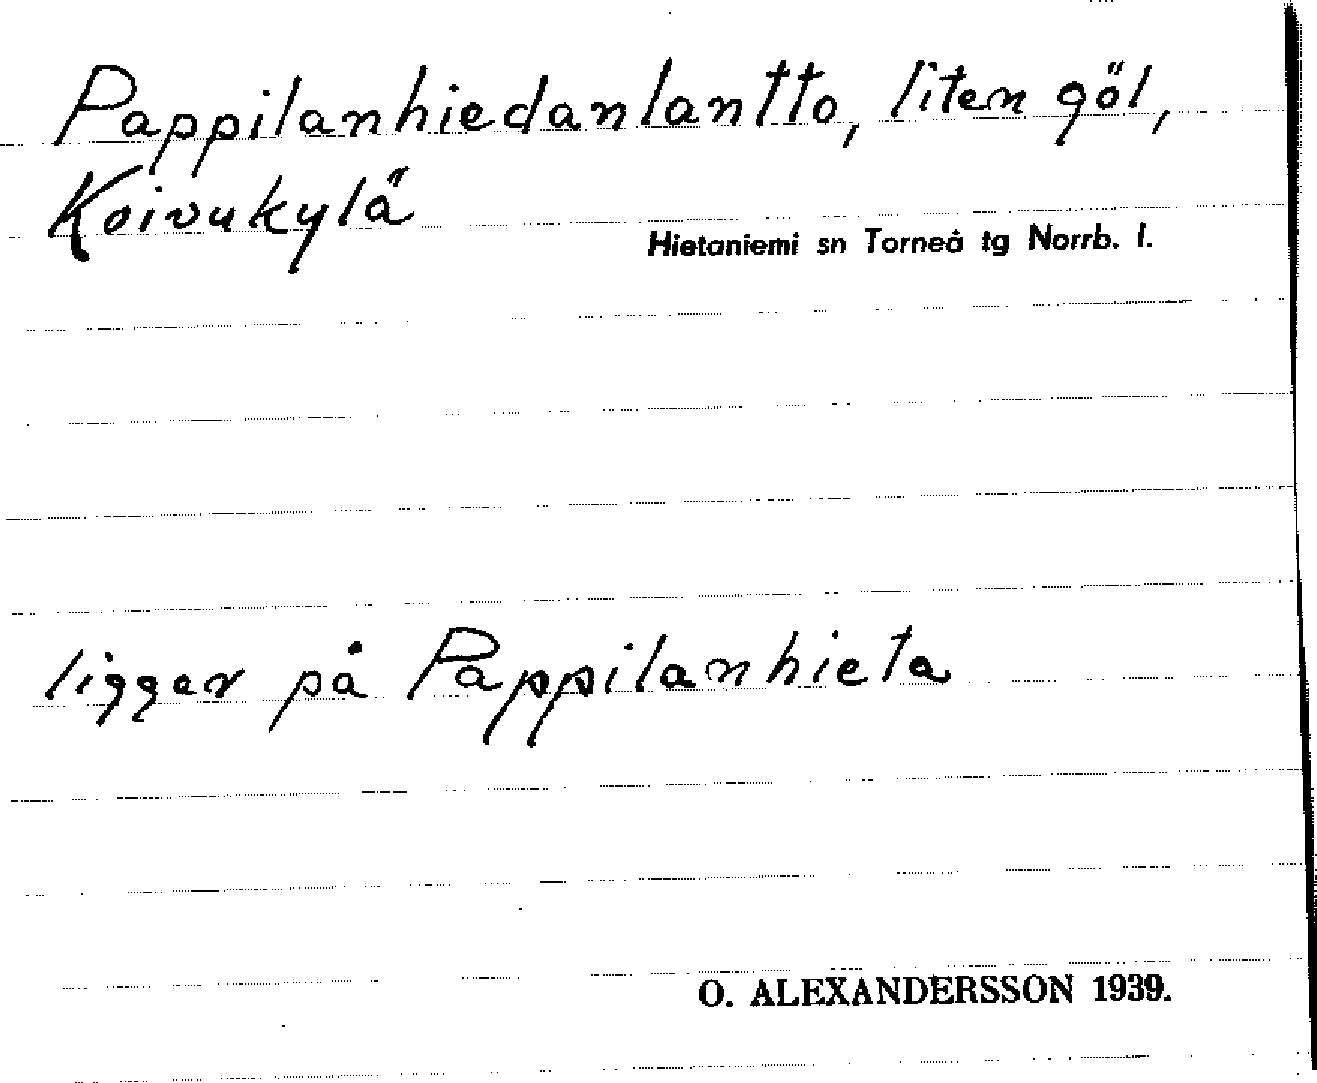 Pappilanhiedanlantto, liten göl,
Koivukylä
Hietaniemi sn Torneå tg Norrb. l.
ligger på Pappilanhieta
O. ALEXANDERSSON 1939.